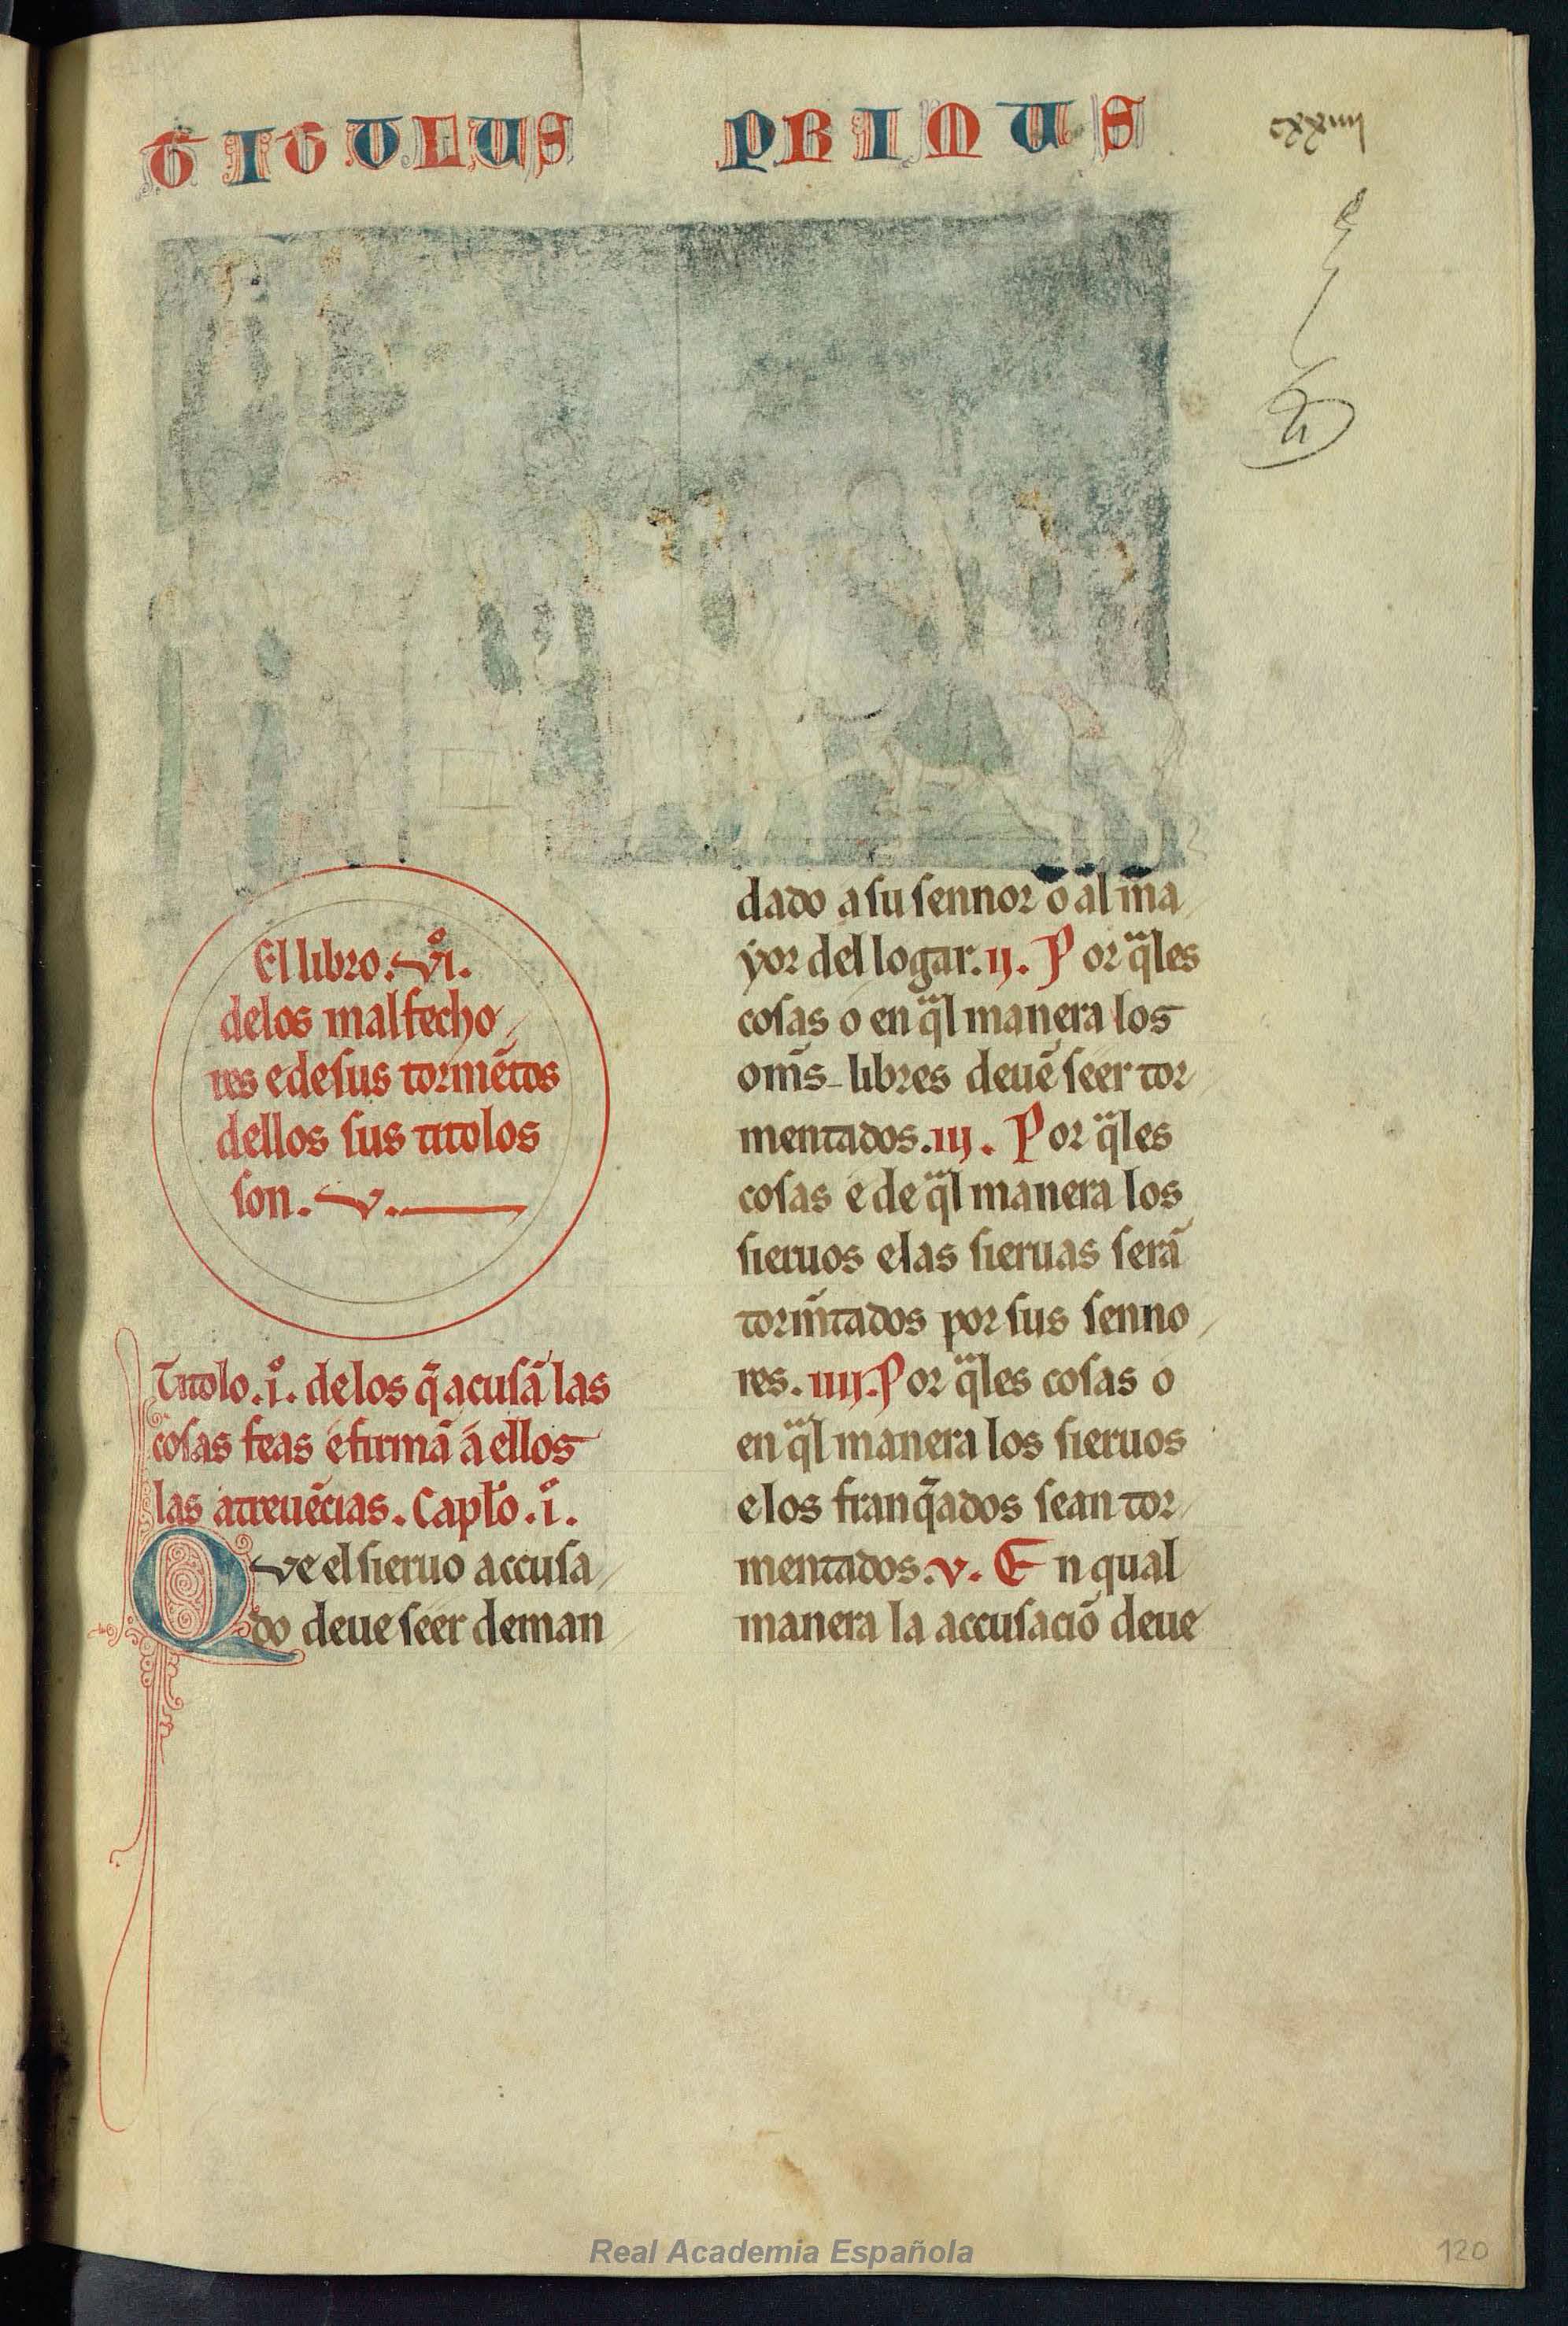 TITULUS PRIMUS
El libro. vıº.
delos malfecho
res e de sus tormētos
dellos sus titolos
son. v.
Titolo. iº. delos q̄ acusā las
cosas feas e firmā a ellos
las atreuēcias. Capło. iº.
Que el sieruo accusa
do deue seer deman
dado a su sennor o al m̄a
yor del logar. ii. Por q̈les
cosas o en q̈l manera los
om̄s libres deuē seer tor
mentados. iii. Por q̈les
cosas e de q̈l manera los
sieruos e las sieruas serā
torm̄tados por sus senno
res. iiii. Por q̈les cosas o
en q̈l manera los sieruos
e los franq̄ados sean tor
mentados. v. En qual
manera la accusaciō deue
Real Academia Española
120